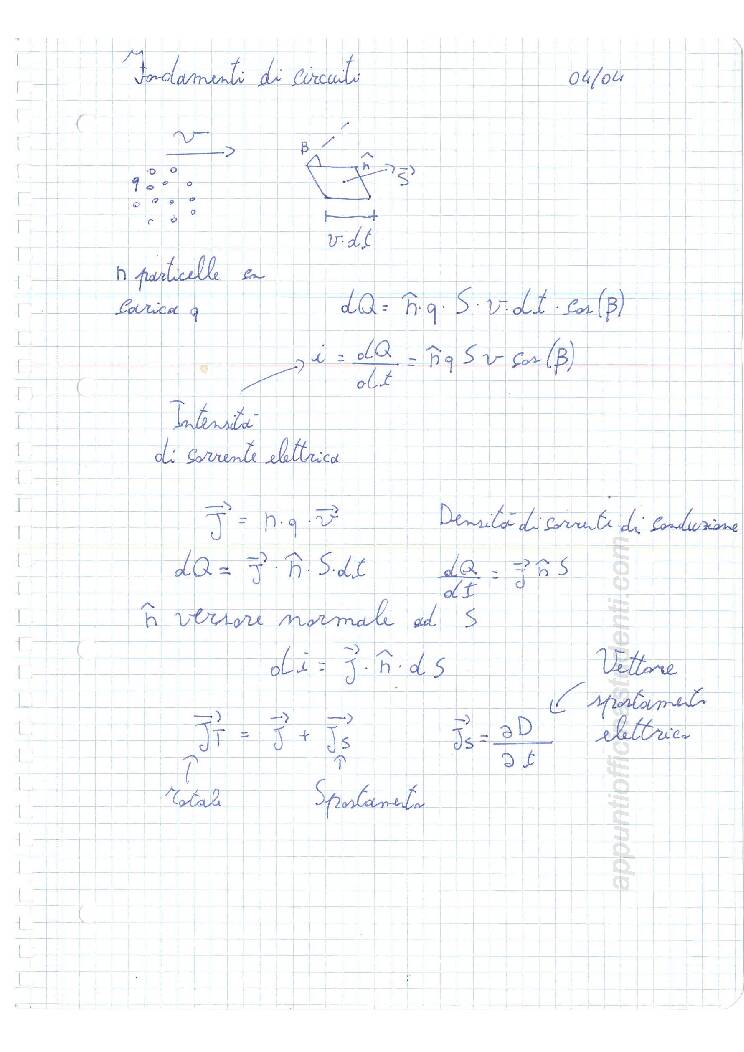 Fondamenti di circuiti 04/04
v
B
n̂
q
S⃗
v·dt
n particelle con
carica q
dQ = n̂·q·S·v·dt·cos(β)
i = dQ/dt = n̂qSv cos(β)
Intensità
di corrente elettrica
J⃗ = n·q·v⃗ Densità di corrente di conduzione
dQ = J⃗·n̂·S·dt dQ/dt = J⃗ n̂ S
n̂ versore normale ad S
di = J⃗·n̂·dS
Vettore
spostamento
elettrico
J⃗T = J⃗ + J⃗s J⃗s = ∂D/∂t
totale Spostamento
appuntiofficinastudenti.com